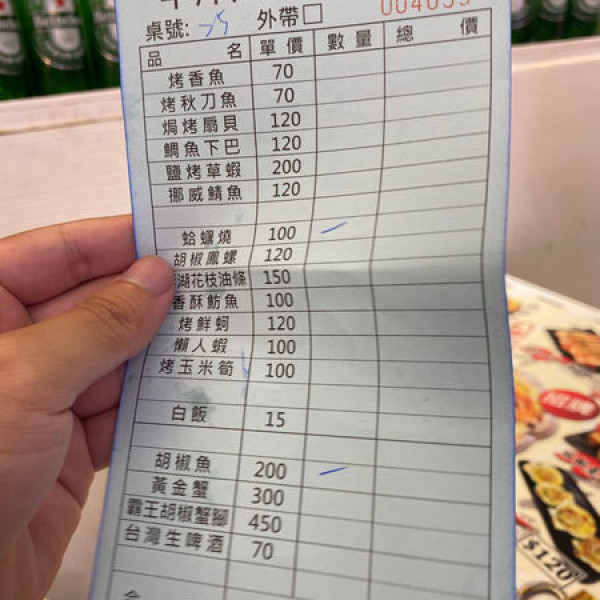 桌號: 外帶□
品名 單價 數量 總價
烤香魚 70
烤秋刀魚 70
焗烤扇貝 120
鯛魚下巴 120
鹽烤草蝦 200
挪威鯖魚 120
蛤蠣燒 100
胡椒鳳螺 120
湖花枝油條 150
香酥魴魚 100
烤鮮蚵 120
懶人蝦 100
烤玉米筍 100
白飯 15
胡椒魚 200
黃金蟹 300
霸王胡椒蟹腳 450
台灣生啤酒 70
招牌
$120